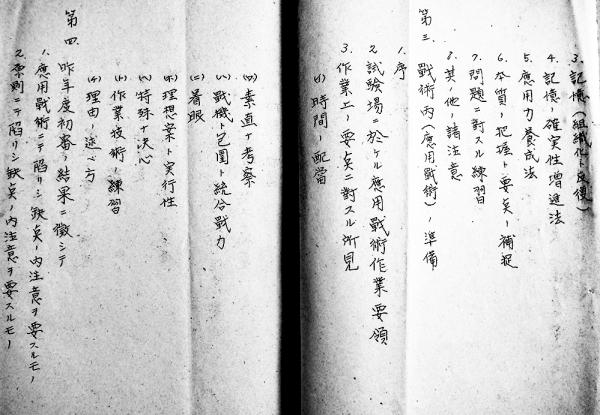 3. 記憶(組織化ト反復)
4. 記憶ノ確実性増進法
5. 應用力養成法
6. 本質ノ把握ト要点ノ補捉
7. 問題ニ対スル練習
8. 其ノ他ノ諸注意
第三 戰術内(應用戰術)ノ準備
1. 序
2. 試験場ニ於ケル應用戰術作業要領
3. 作業上ノ要点ニ対スル所見
(イ) 時間ノ配当
(ロ) 素直ナ考察
(ハ) 戰機ト包囲ト統合戰力
(ニ) 着眼
(ホ) 理想案ト実行性
(ヘ) 特殊ナ決心
(ト) 作業技術ノ練習
(チ) 理由ノ述ベ方
第四 昨年度初審ノ結果ニ徴シテ
1. 應用戰術ニテ陥リシ缺点ノ内注意ヲ要スルモノ
2. 原則ニテ陥リシ缺点ノ内注意ヲ要スルモノ